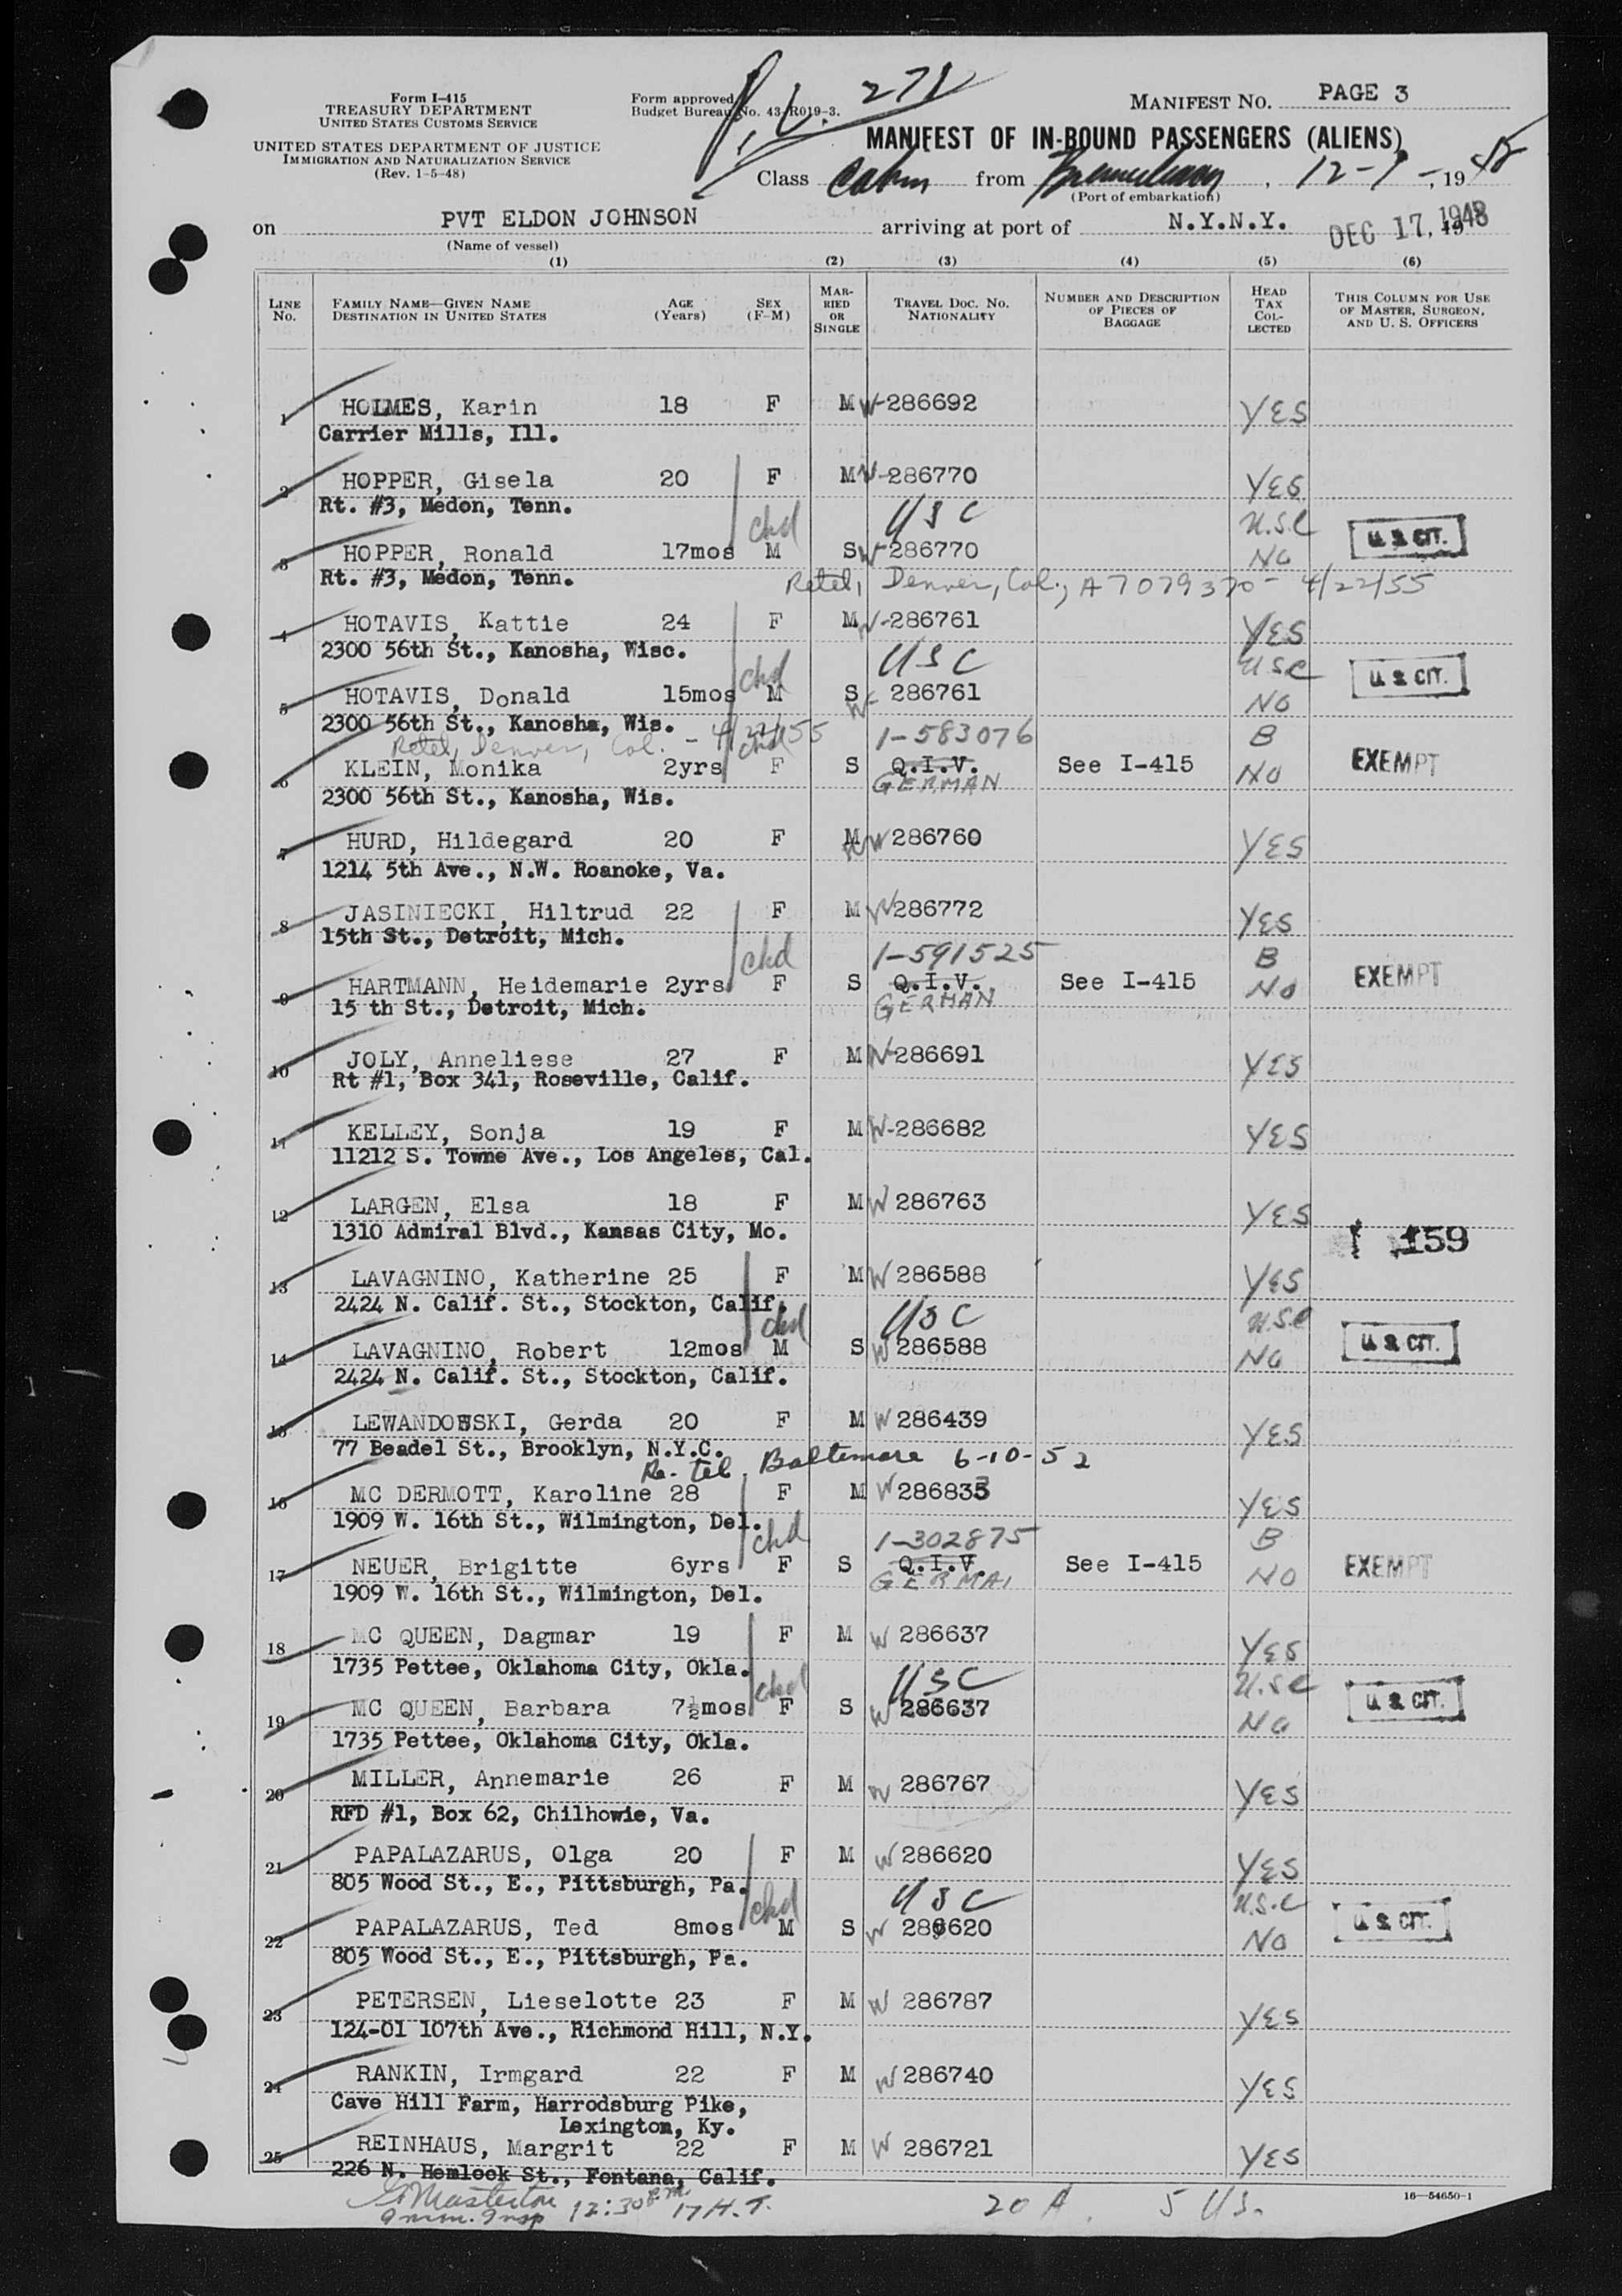 Form I-415
TREASURY DEPARTMENT
UNITED STATES CUSTOMS SERVICE
UNITED STATES DEPARTMENT OF JUSTICE
IMMIGRATION AND NATURALIZATION SERVICE
(Rev. 1-5-48)
Form approved
Budget Bureau No. 43-R019-3.
271
MANIFEST NO. PAGE 3
MANIFEST OF IN-BOUND PASSENGERS (ALIENS)
Class Cabin from Bremerhaven, 12-7-, 1948
(Port of embarkation)
on PVT ELDON JOHNSON arriving at port of N.Y.N.Y. DEC 17, 1948
(Name of vessel)
(1) (2) (3) (4) (5) (6)
LINE No. FAMILY NAME—GIVEN NAME DESTINATION IN UNITED STATES AGE (Years) SEX (F-M) MARRIED OR SINGLE TRAVEL DOC. NO. NATIONALITY NUMBER AND DESCRIPTION OF PIECES OF BAGGAGE HEAD TAX COLLECTED THIS COLUMN FOR USE OF MASTER, SURGEON, AND U. S. OFFICERS
1 HOLMES, Karin 18 F M W-286692 YES
Carrier Mills, Ill.
2 HOPPER, Gisela 20 F M W-286770 YES
Rt. #3, Medon, Tenn.
chd USC U.S.C U S CIT.
3 HOPPER, Ronald 17mos M S W-286770 NO
Rt. #3, Medon, Tenn.
Retel, Denver, Col., A7079370 - 4/22/55
4 HOTAVIS, Kattie 24 F M W-286761 YES
2300 56th St., Kanosha, Wisc.
chd USC USC U S CIT.
5 HOTAVIS, Donald 15mos M S W- 286761 NO
2300 56th St., Kanosha, Wis.
Retel, Denver, Col. - 4/22/55 chd 1-583076 B
6 KLEIN, Monika 2yrs F S Q.I.V. See I-415 NO EXEMPT
GERMAN
2300 56th St., Kanosha, Wis.
7 HURD, Hildegard 20 F M W 286760 YES
1214 5th Ave., N.W. Roanoke, Va.
8 JASINIECKI, Hiltrud 22 F M W286772 YES
15th St., Detroit, Mich.
chd 1-591525 B
9 HARTMANN, Heidemarie 2yrs F S Q.I.V. See I-415 NO EXEMPT
GERMAN
15 th St., Detroit, Mich.
10 JOLY, Anneliese 27 F M W-286691 YES
Rt #1, Box 341, Roseville, Calif.
11 KELLEY, Sonja 19 F M W-286682 YES
11212 S. Towne Ave., Los Angeles, Cal.
12 LARGEN, Elsa 18 F M W 286763 YES
1310 Admiral Blvd., Kansas City, Mo.
159
13 LAVAGNINO, Katherine 25 F M W 286588 YES
2424 N. Calif. St., Stockton, Calif.
chd USC U.S.C U S CIT.
14 LAVAGNINO, Robert 12mos M S W 286588 NO
2424 N. Calif. St., Stockton, Calif.
15 LEWANDOWSKI, Gerda 20 F M W 286439 YES
77 Beadel St., Brooklyn, N.Y.C.
Re-tel. Baltimore 6-10-52
16 MC DERMOTT, Karoline 28 F M W 286833 YES
1909 W. 16th St., Wilmington, Del.
chd 1-302875 B
17 NEUER, Brigitte 6yrs F S Q.I.V. See I-415 NO EXEMPT
GERMAN
1909 W. 16th St., Wilmington, Del.
18 MC QUEEN, Dagmar 19 F M W 286637 YES
1735 Pettee, Oklahoma City, Okla.
chd USC U.S.C U S CIT.
19 MC QUEEN, Barbara 7½mos F S W 286637 NO
1735 Pettee, Oklahoma City, Okla.
20 MILLER, Annemarie 26 F M W 286767 YES
RFD #1, Box 62, Chilhowie, Va.
21 PAPALAZARUS, Olga 20 F M W 286620 YES
805 Wood St., E., Pittsburgh, Pa.
chd USC U.S.C U S CIT.
22 PAPALAZARUS, Ted 8mos M S W 286620 NO
805 Wood St., E., Pittsburgh, Pa.
23 PETERSEN, Lieselotte 23 F M W 286787 YES
124-01 107th Ave., Richmond Hill, N.Y.
24 RANKIN, Irmgard 22 F M W 286740 YES
Cave Hill Farm, Harrodsburg Pike,
Lexington, Ky.
25 REINHAUS, Margrit 22 F M W 286721 YES
226 N. Hemlock St., Fontana, Calif.
G Masterton 12:30 P.M. 17 H.T. 20 A. 5 US.
Imm. Insp
16—54650-1